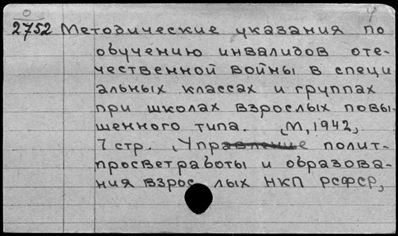 2752 Методические указания по
обучению инвалидов оте-
чественной войны в специ
альных классах и группах
при школах взрослых повы-
шенного типа. М, 1942,
7 стр. Управление полит-
просветработы и образова-
ния взрослых НКП РСФСР,